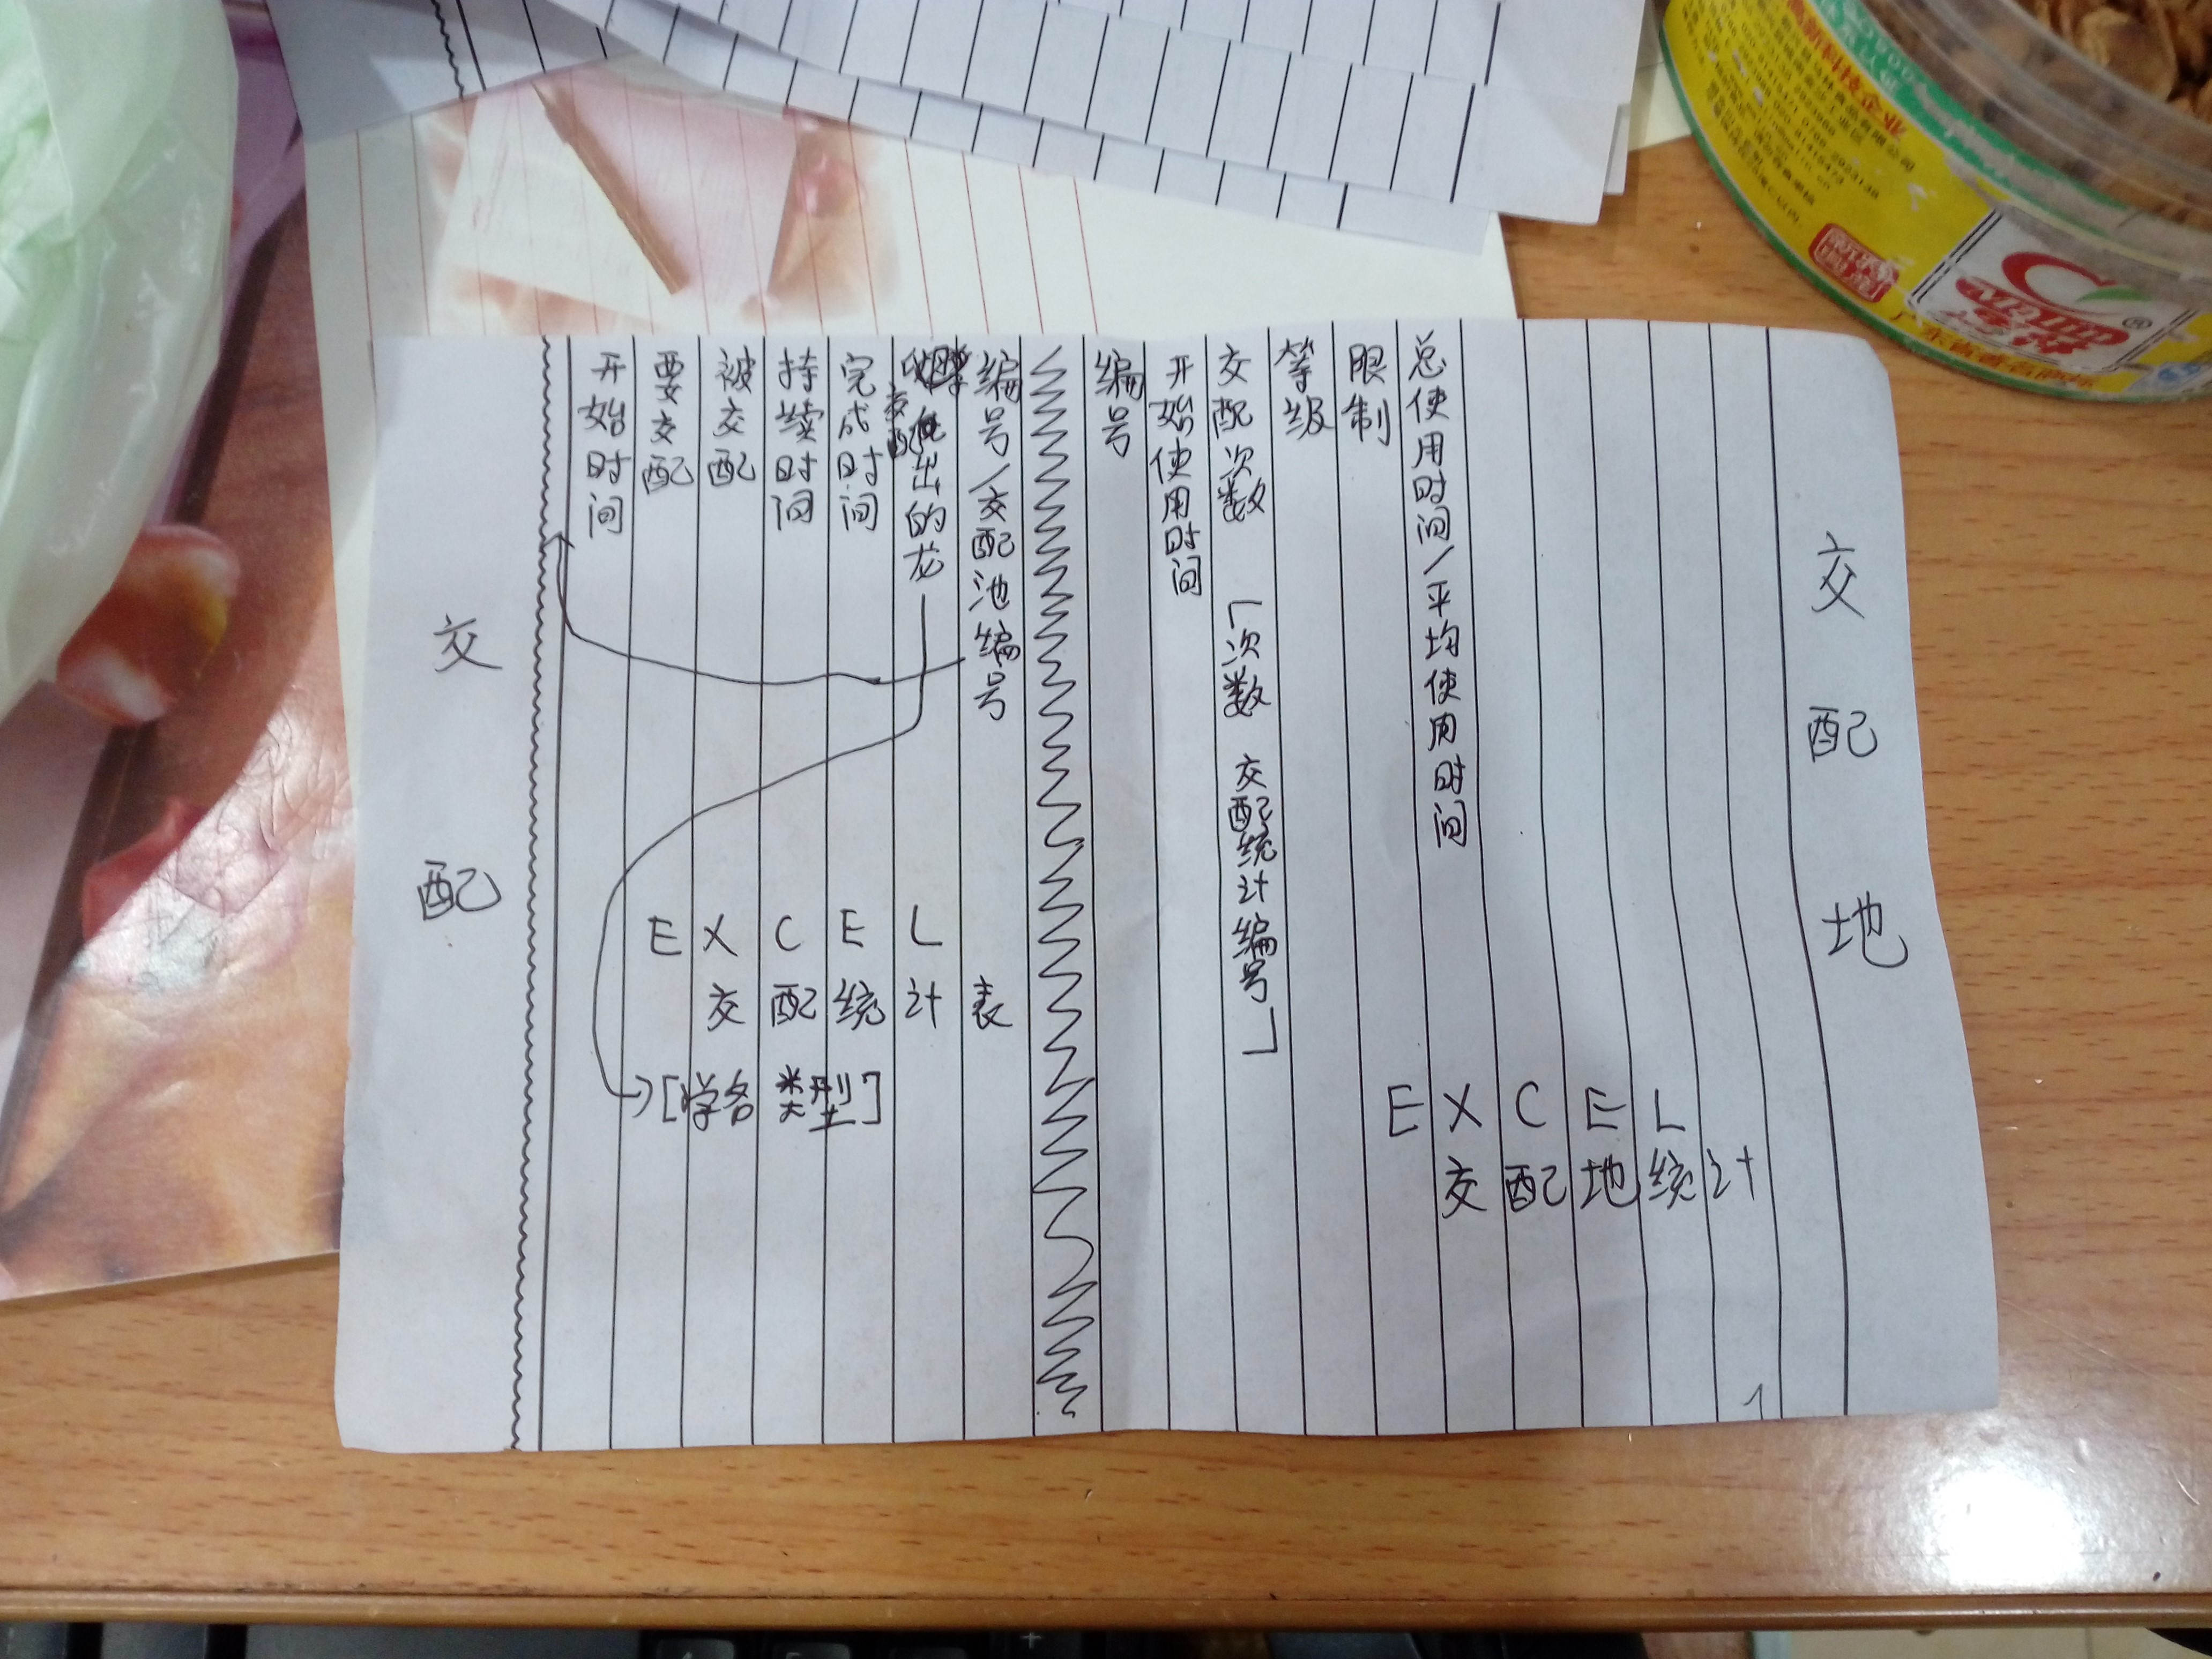 交配
开始时间
要交配
被交配
持续时间
完成时间
交配出的龙
编号/交配池编号
EXCEL
交配统计表
[学名 类型]
编号
开始使用时间
交配次数 「次数 交配统计编号」
等级
限制
总使用时间/平均使用时间
EXCEL
交配地统计
交配地